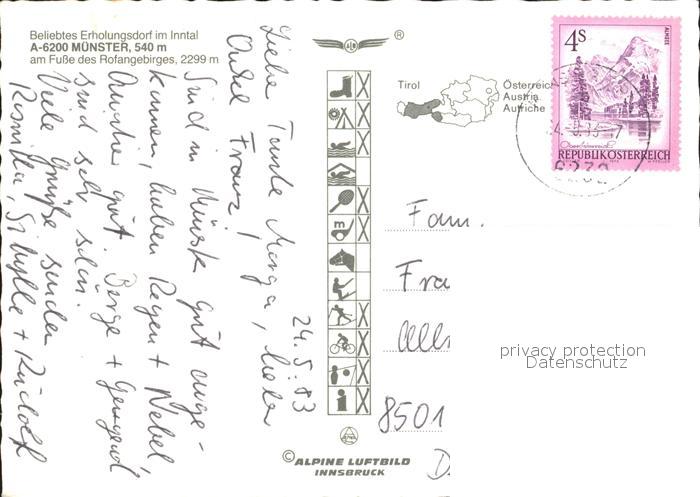 Beliebtes Erholungsdorf im Inntal
A-6200 MÜNSTER, 540 m
am Fuße des Rofangebirges, 2299 m
24.5.83
Liebe Tante Marga, lieber
Onkel Franz!
Sind in Münster gut ange-
kommen, haben Regen + Nebel
sind sehr schön.
Viele Grüße senden
Sibylle + Rudolf
®
m
i
© ALPINE LUFTBILD
INNSBRUCK
Tirol
Österreich
Austria
Autriche
4S
ALMSEE
REPUBLIK ÖSTERREICH
6230
Fam.
Fra
8501
D
privacy protection
Datenschutz